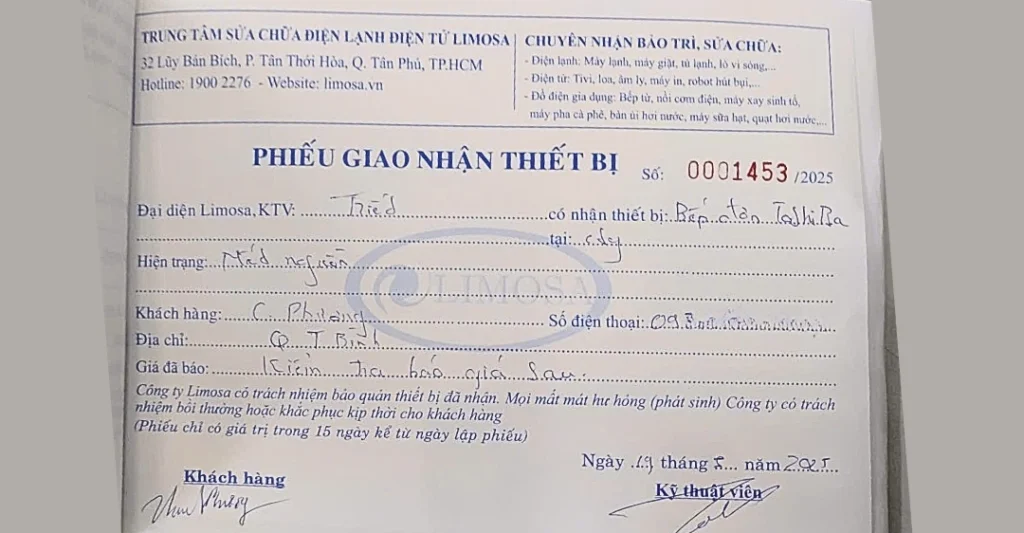 TRUNG TÂM SỬA CHỮA ĐIỆN LẠNH ĐIỆN TỬ LIMOSA
32 Lũy Bán Bích, P. Tân Thới Hòa, Q. Tân Phú, TP.HCM
Hotline: 1900 2276 - Website: limosa.vn
CHUYÊN NHẬN BẢO TRÌ, SỬA CHỮA:
- Điện lạnh: Máy lạnh, máy giặt, tủ lạnh, lò vi sóng,...
- Điện tử: Tivi, loa, âm ly, máy in, robot hút bụi,...
- Đồ điện gia dụng: Bếp từ, nồi cơm điện, máy xay sinh tố,
máy pha cà phê, bàn ủi hơi nước, máy sữa hạt, quạt hơi nước,...
PHIẾU GIAO NHẬN THIẾT BỊ Số: 0001453 /2025
Đại diện Limosa, KTV: có nhận thiết bị: Bếp
tại:
Hiện trạng: Mất nguồn
LIMOSA
Khách hàng: C. Phương Số điện thoại: 09
Địa chỉ: Q T Bình
Giá đã báo: Kiểm tra báo giá sau.
Công ty Limosa có trách nhiệm bảo quản thiết bị đã nhận. Mọi mất mát hư hỏng (phát sinh) Công ty có trách
nhiệm bồi thường hoặc khắc phục kịp thời cho khách hàng
(Phiếu chỉ có giá trị trong 15 ngày kể từ ngày lập phiếu)
Ngày 19 tháng 5 năm 2025
Khách hàng Kỹ thuật viên